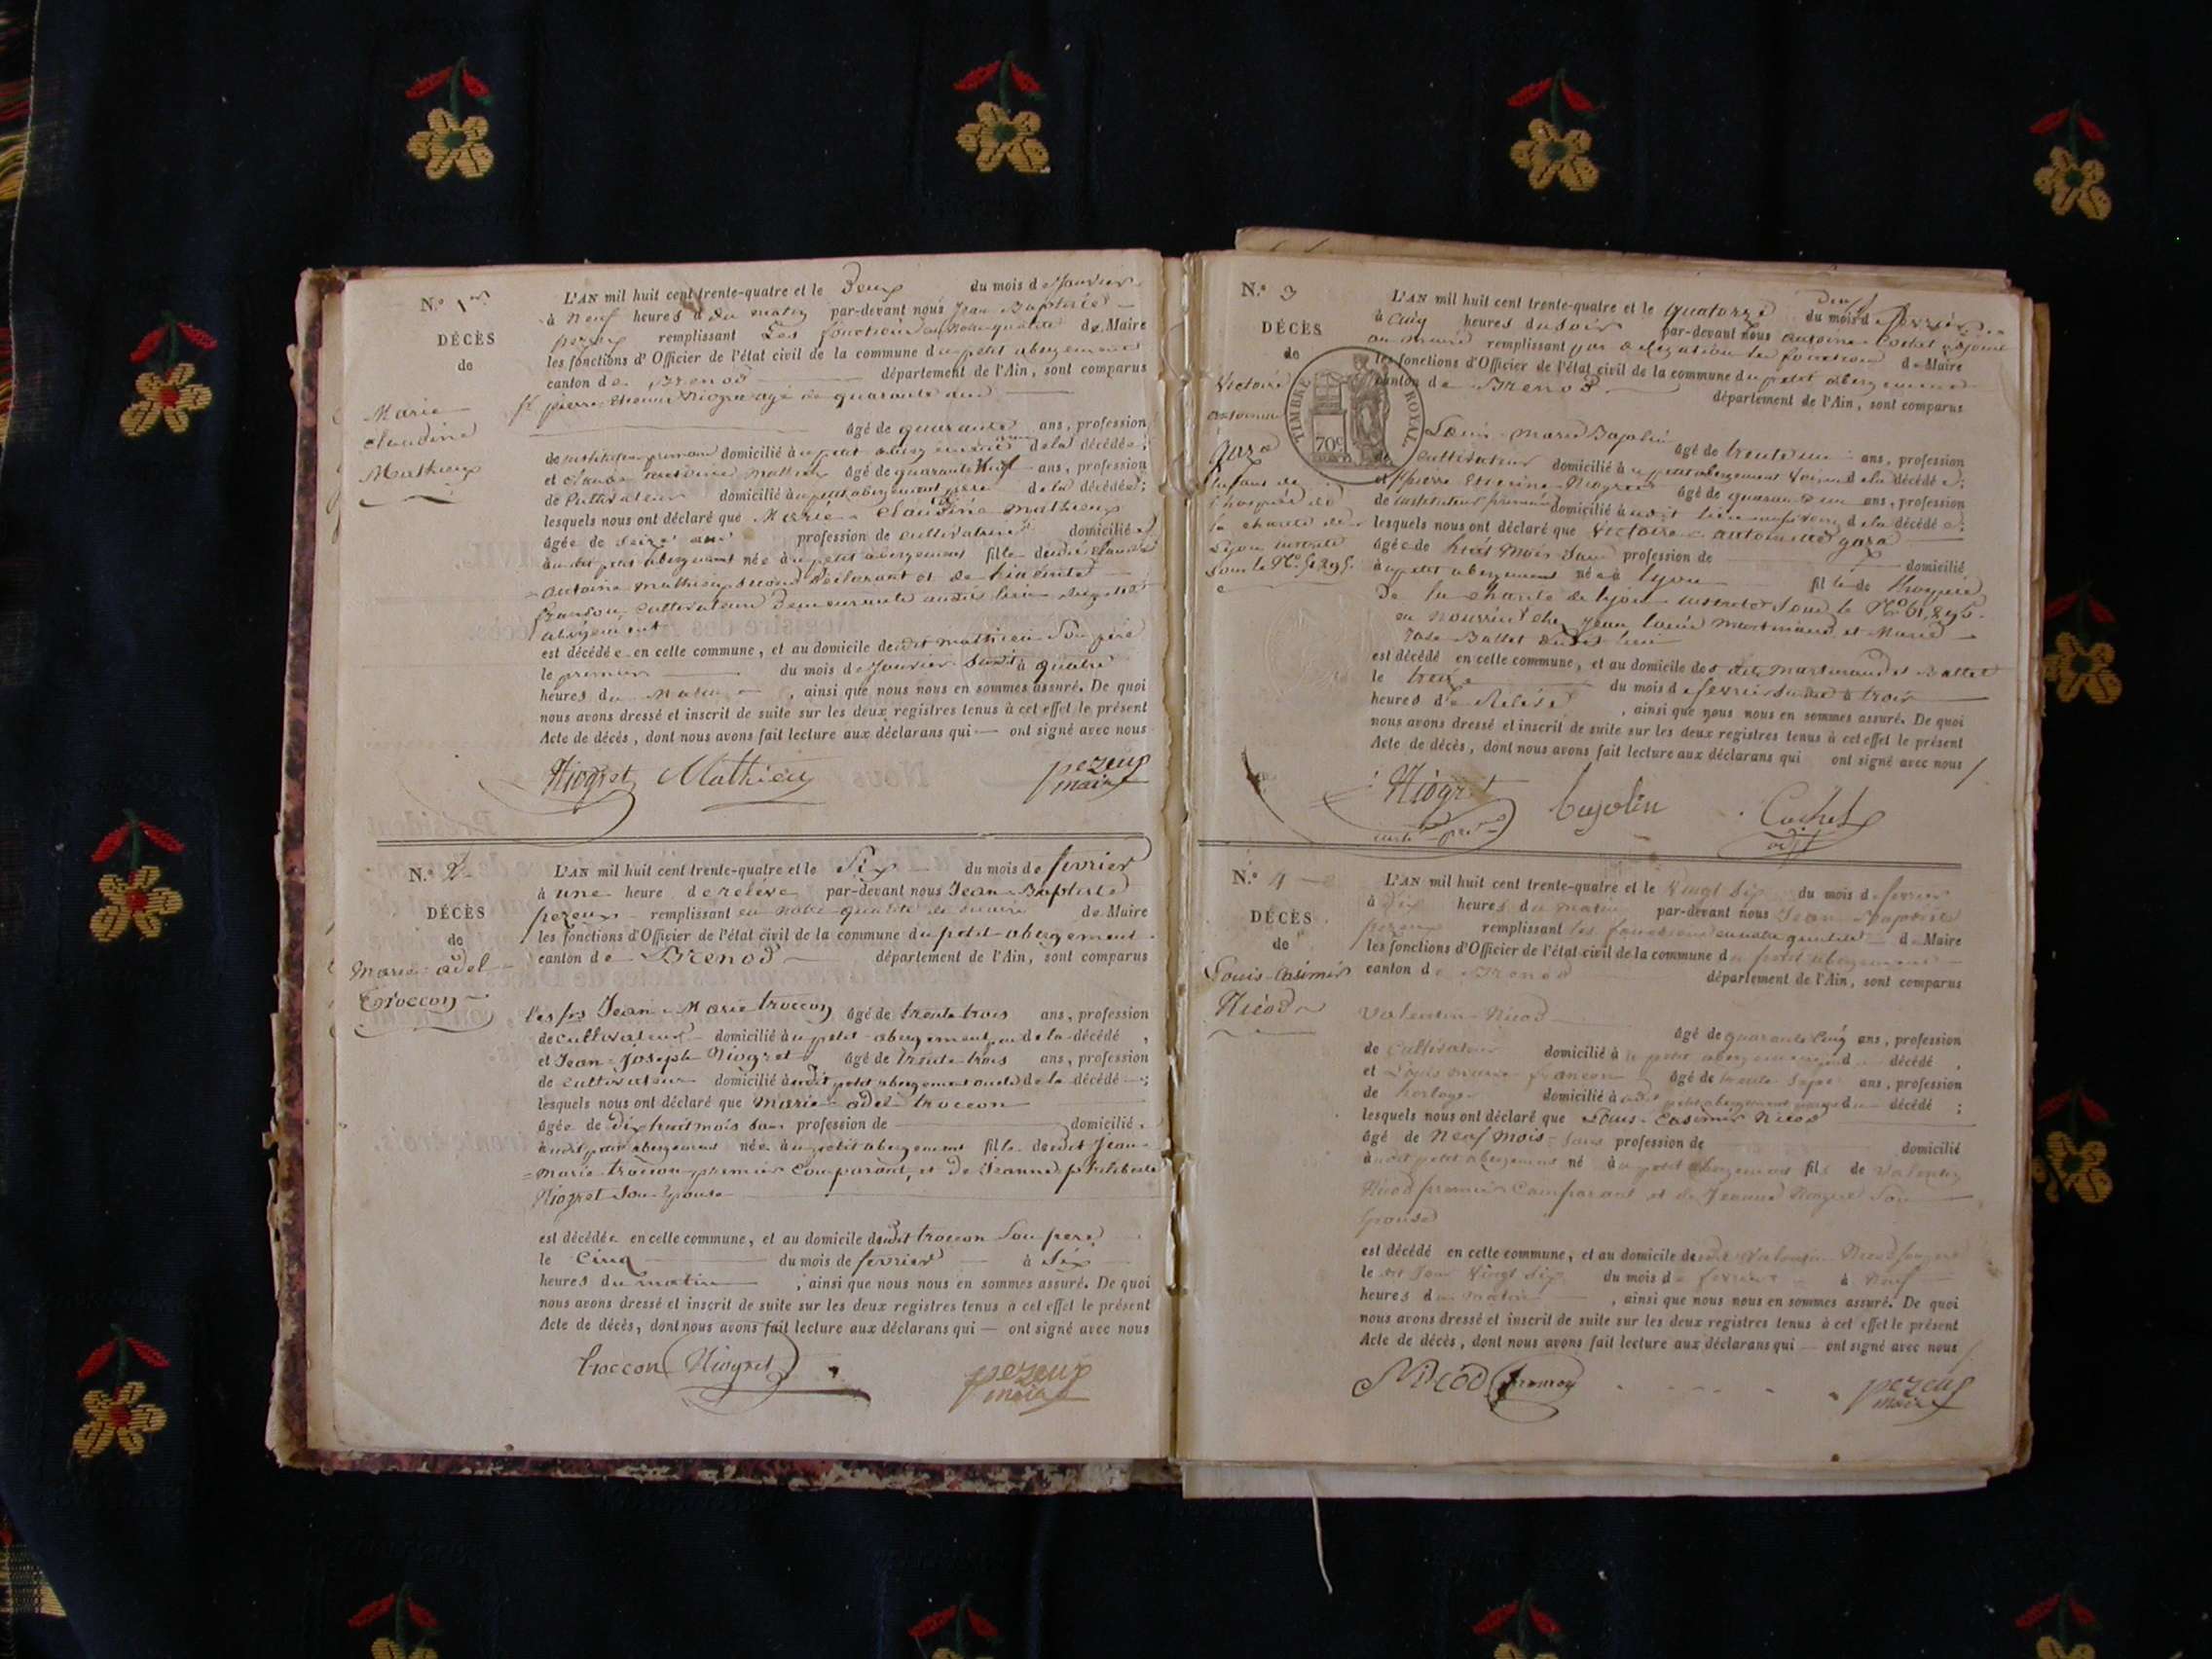 N.° 1er
DÉCÈS
de
Marie
Claudine
Mathieux
L'AN mil huit cent trente-quatre et le Deux du mois de Janvier
à Neuf heures du matin par-devant nous Jean Baptiste
pezeux remplissant Les fonctions en notre qualité de Maire
les fonctions d'Officier de l'état civil de la commune du petit abergement
canton de Brenod département de l'Ain, sont comparus
pierre Etienne Niogret agé de quarante
âgé de quarante ans, profession
domicilié au petit abergement de la décédée;
et Claude antoine Mathieu âgé de quarante Neuf ans, profession
de Cultivateur domicilié au petit abergement père de la décédée;
lesquels nous ont déclaré que Marie Claudine Mathieux
âgée de seize ans profession de cultivatrice domiciliée
audit petit abergement née au petit abergement fille dudit Claude
antoine Mathieu second déclarant et de
cultivateurs Demeurants audit lieu du petit
abergement
est décédée en cette commune, et au domicile dudit Mathieu Son père
le premier du mois de Janvier Susdit à quatre
heures du Matin, ainsi que nous nous en sommes assuré. De quoi
nous avons dressé et inscrit de suite sur les deux registres tenus à cet effet le présent
Acte de décès, dont nous avons fait lecture aux déclarans qui — ont signé avec nous
Niogret Mathieu pezeux
maire
N.° 2
DÉCÈS
de
Marie adel
Troccon
L'AN mil huit cent trente-quatre et le Six du mois de fevrier
à une heure de relevée par-devant nous Jean Baptiste
pezeux remplissant en notre qualité de maire de Maire
les fonctions d'Officier de l'état civil de la commune du petit abergement
canton de Brenod département de l'Ain, sont comparus
les srs Jean Marie troccon âgé de trente trois ans, profession
de cultivateur domicilié au petit abergement de la décédé,
et Jean Joseph Niogret âgé de trente trois ans, profession
de cultivateur domicilié audit petit abergement oncle de la décédé;
lesquels nous ont déclaré que marie adel troccon
âgée de dix huit mois Sans profession de domicilié
audit petit abergement née au petit abergement fille dudit Jean
Marie troccon premier Comparant, et De Jeanne philiberte
Niogret Son Epouse
est décédée en cette commune, et au domicile dudit troccon Son pere
le Cinq du mois de fevrier à Six
heures du matin, ainsi que nous nous en sommes assuré. De quoi
nous avons dressé et inscrit de suite sur les deux registres tenus à cet effet le présent
Acte de décès, dont nous avons fait lecture aux déclarans qui — ont signé avec nous
troccon Niogret pezeux
maire
N.° 3
DÉCÈS
de
Victoire
antoinette
gara
Enfant de
l'hospice de
la charité de
Lyon inscrite
Sous le N°
TIMBRE ROYAL
70c
L'AN mil huit cent trente-quatre et le quatorze du mois de fevrier
à Cinq heures du Soir par-devant nous antoine Cochet adjoint
au maire remplissant par délégation les fonctions de Maire
les fonctions d'Officier de l'état civil de la commune du petit abergement
canton de Brenod département de l'Ain, sont comparus
Louis Marie Bajolin âgé de trente ans, profession
de cultivateur domicilié au petit abergement Voisin de la décédée;
et pierre Etienne Niogret âgé de quarante ans, profession
de instituteur primaire domicilié audit lieu de la décédée;
lesquels nous ont déclaré que Victoire antoinette gara
âgée de huit Mois Sans profession de domicilié
au petit abergement née à Lyon fille de l'hospice
De la charité de Lyon inscrite Sous le N°
en Nourrice chez Jean Louis Martinand et Marie
Ballet dudit lieu
est décédé en cette commune, et au domicile des dits Martinand et Ballet
le treize du mois de fevrier Susdit à trois
heures de Relevée, ainsi que nous nous en sommes assuré. De quoi
nous avons dressé et inscrit de suite sur les deux registres tenus à cet effet le présent
Acte de décès, dont nous avons fait lecture aux déclarans qui ont signé avec nous
Niogret bajolin Cochet
adjt
N.° 4
DÉCÈS
de
Louis Casimir
Nicod
L'AN mil huit cent trente-quatre et le Vingt Six du mois de fevrier
à dix heures du matin par-devant nous Jean Baptiste
pezeux remplissant les fonctions en notre qualité de Maire
les fonctions d'Officier de l'état civil de la commune du petit abergement
canton de Brenod département de l'Ain, sont comparus
Valentin Nicod
âgé de quarante Cinq ans, profession
de Cultivateur domicilié au petit abergement du décédé,
et Louis Marie francon âgé de trente Sept ans, profession
de horloger domicilié audit petit abergement du décédé;
lesquels nous ont déclaré que Louis Casimir Nicod
âgé de Neuf Mois Sans profession de domicilié
audit petit abergement né au petit abergement fils de Valentin
Nicod premier Comparant et de Jeanne Niogret Son
Epouse
est décédé en cette commune, et au domicile dudit Valentin Nicod
le dit Jour Vingt Six du mois de fevrier à Neuf
heures du matin, ainsi que nous nous en sommes assuré. De quoi
nous avons dressé et inscrit de suite sur les deux registres tenus à cet effet le présent
Acte de décès, dont nous avons fait lecture aux déclarans qui — ont signé avec nous
Nicod francon pezeux
maire